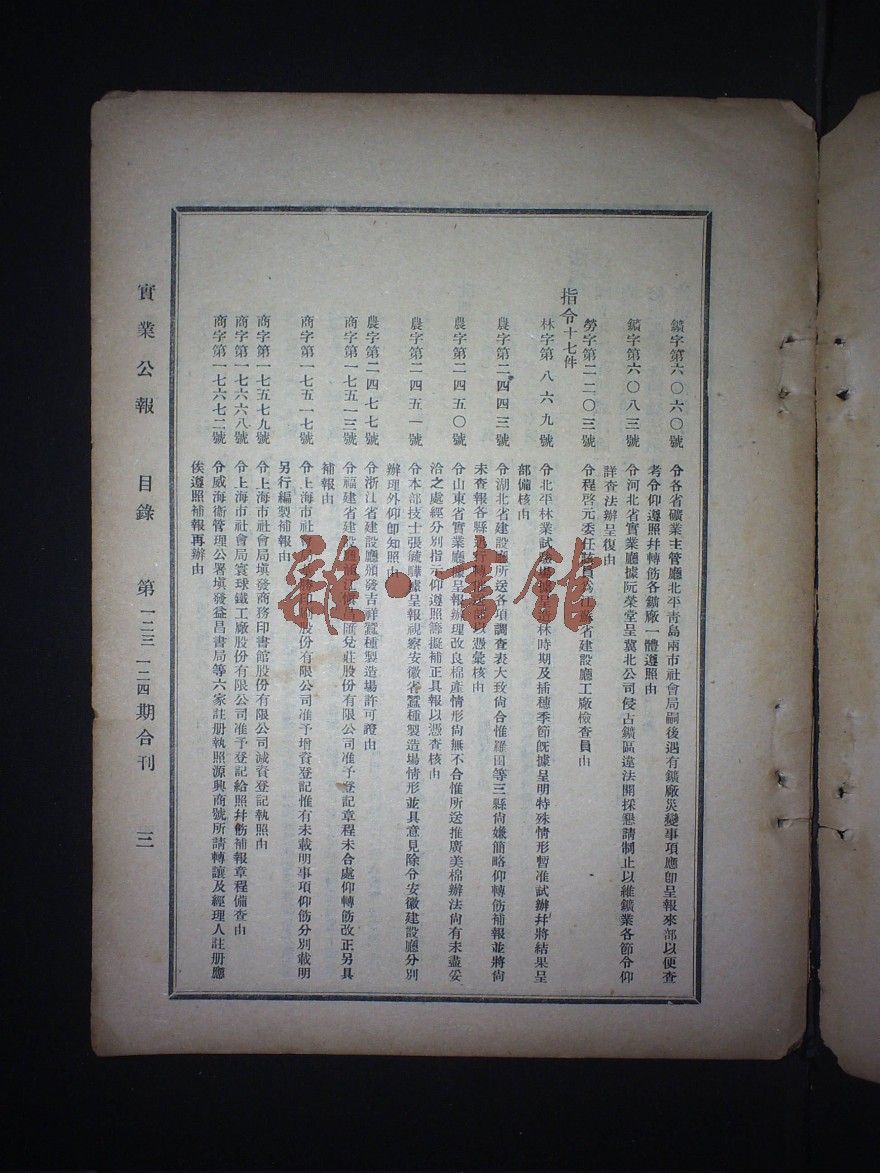 鑛字第六〇六〇號　令各省礦業主管廳北平靑島兩市社會局嗣後遇有鑛廠災變事項應卽呈報來部以便查
考令仰遵照幷轉飭各鑛廠一體遵照由
鑛字第六〇八三號　令河北省實業廳據阮榮堂呈冀北公司侵占鑛區違法開採懇請制止以維鑛業各節令仰
詳查法辦呈復由
勞字第二二〇三號　令程啓元委任該員為江蘇省建設廳工廠檢查員由
指令十七件
林字第八六九號　令北平林業試驗場據呈造林時期及插種季節旣據呈明特殊情形暫准試辦幷將結果呈
部備核由
農字第二四四三號　令湖北省建設廳所送各項調查表大致尙合惟羅田等三縣尙嫌簡略仰轉飭補報並將尙
未查報各縣迅行轉飭送部以憑彙核由
農字第二四五〇號　令山東省實業廳據呈報辦理改良棉產情形尙無不合惟所送推廣美棉辦法尙有未盡妥
洽之處經分別指示仰遵照籌擬補正具報以憑查核由
農字第二四五一號　令本部技士張 驊據呈報視察安徽省蠶種製造場情形並具意見除令安徽建設廳分別
辦理外仰卽知照由
農字第二四七七號　令浙江省建設廳頒發吉祥蠶種製造場許可證由
商字第一七五一三號　令福建省建設廳 匯兌莊股份有限公司准予登記章程未合處仰轉飭改正另具
補報由
商字第一七五一七號　令上海市社會局 印 股份有限公司准予增資登記惟有未載明事項仰飭分別載明
另行編製補報由
商字第一七五七九號　令上海市社會局塡發商務印書館股份有限公司減資登記執照由
商字第一七六六八號　令上海市社會局寰球鐵工廠股份有限公司准予登記給照幷飭補報章程備查由
商字第一七六七二號　令威海衞管理公署塡發益昌書局等六家註册執照源興商號所請轉讓及經理人註册應
俟遵照補報再辦由
實業公報　目錄　第一二三一二四期合刊　三
雜·書館